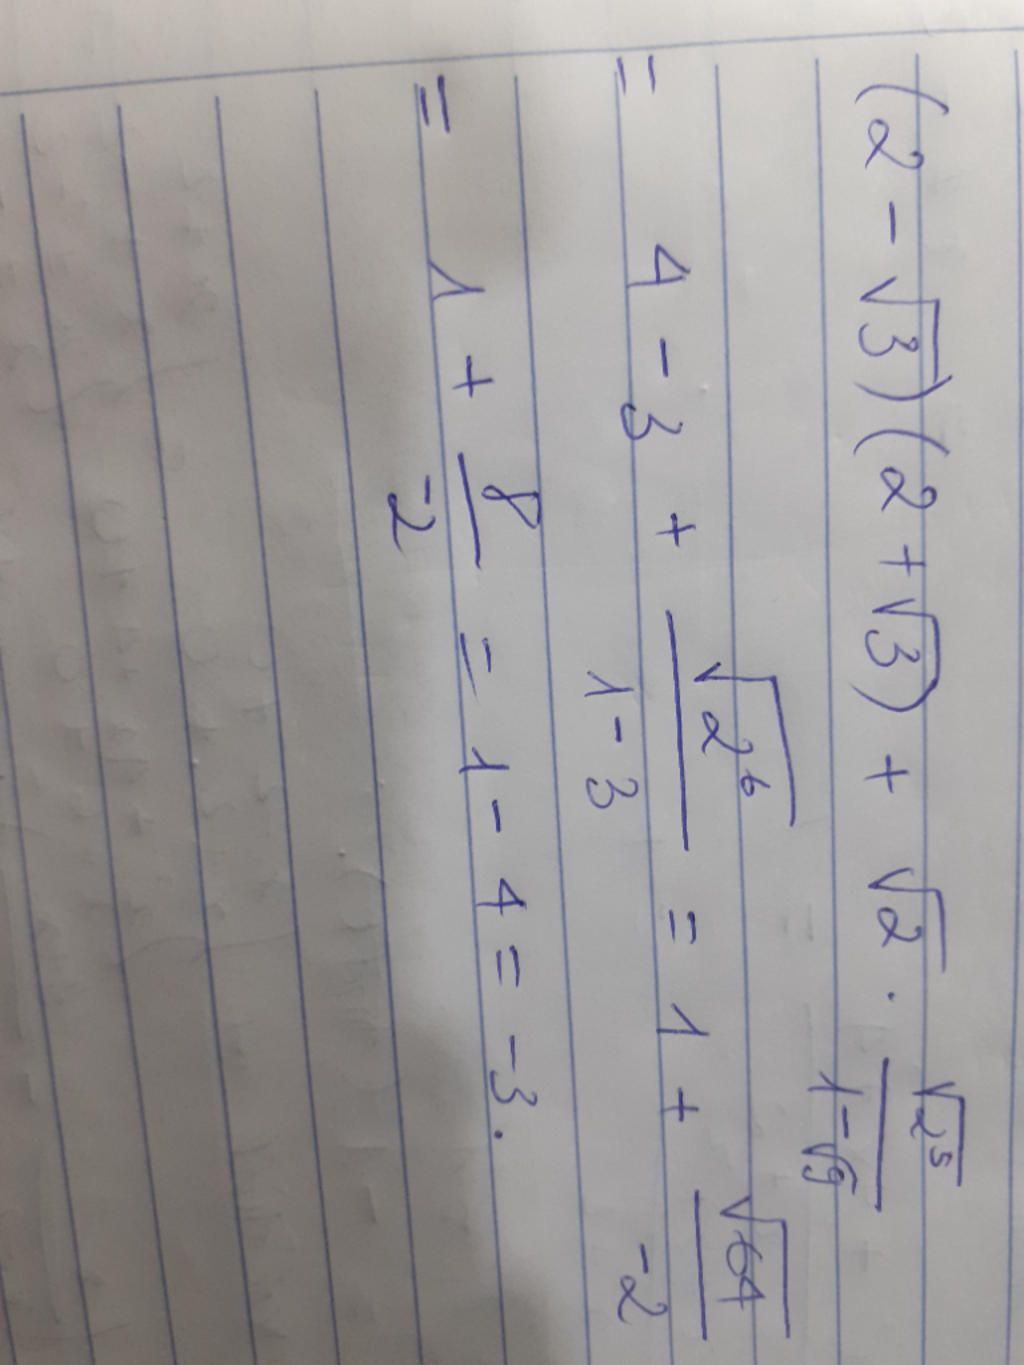 (2 - √3)(2 + √3) + √2 · √2⁵ / (1 - √9)
= 4 - 3 + √2⁶ / (1 - 3) = 1 + √64 / -2
= 1 + 8 / -2 = 1 - 4 = -3.